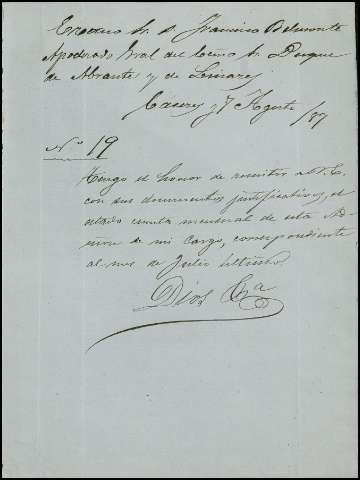 Excmo Sr. D. Francisco Belmonte
Apoderado Gral del Excmo Sr. Duque
de Abrantes y de Linares
Cáceres y 7 Agosto /87
Nº 19
Tengo el honor de remitir a V. E.
con sus documentos justificativos, el
estado cuenta mensual de esta Ad
mon de mi cargo, correspondiente
al mes de Julio último
Dios &a